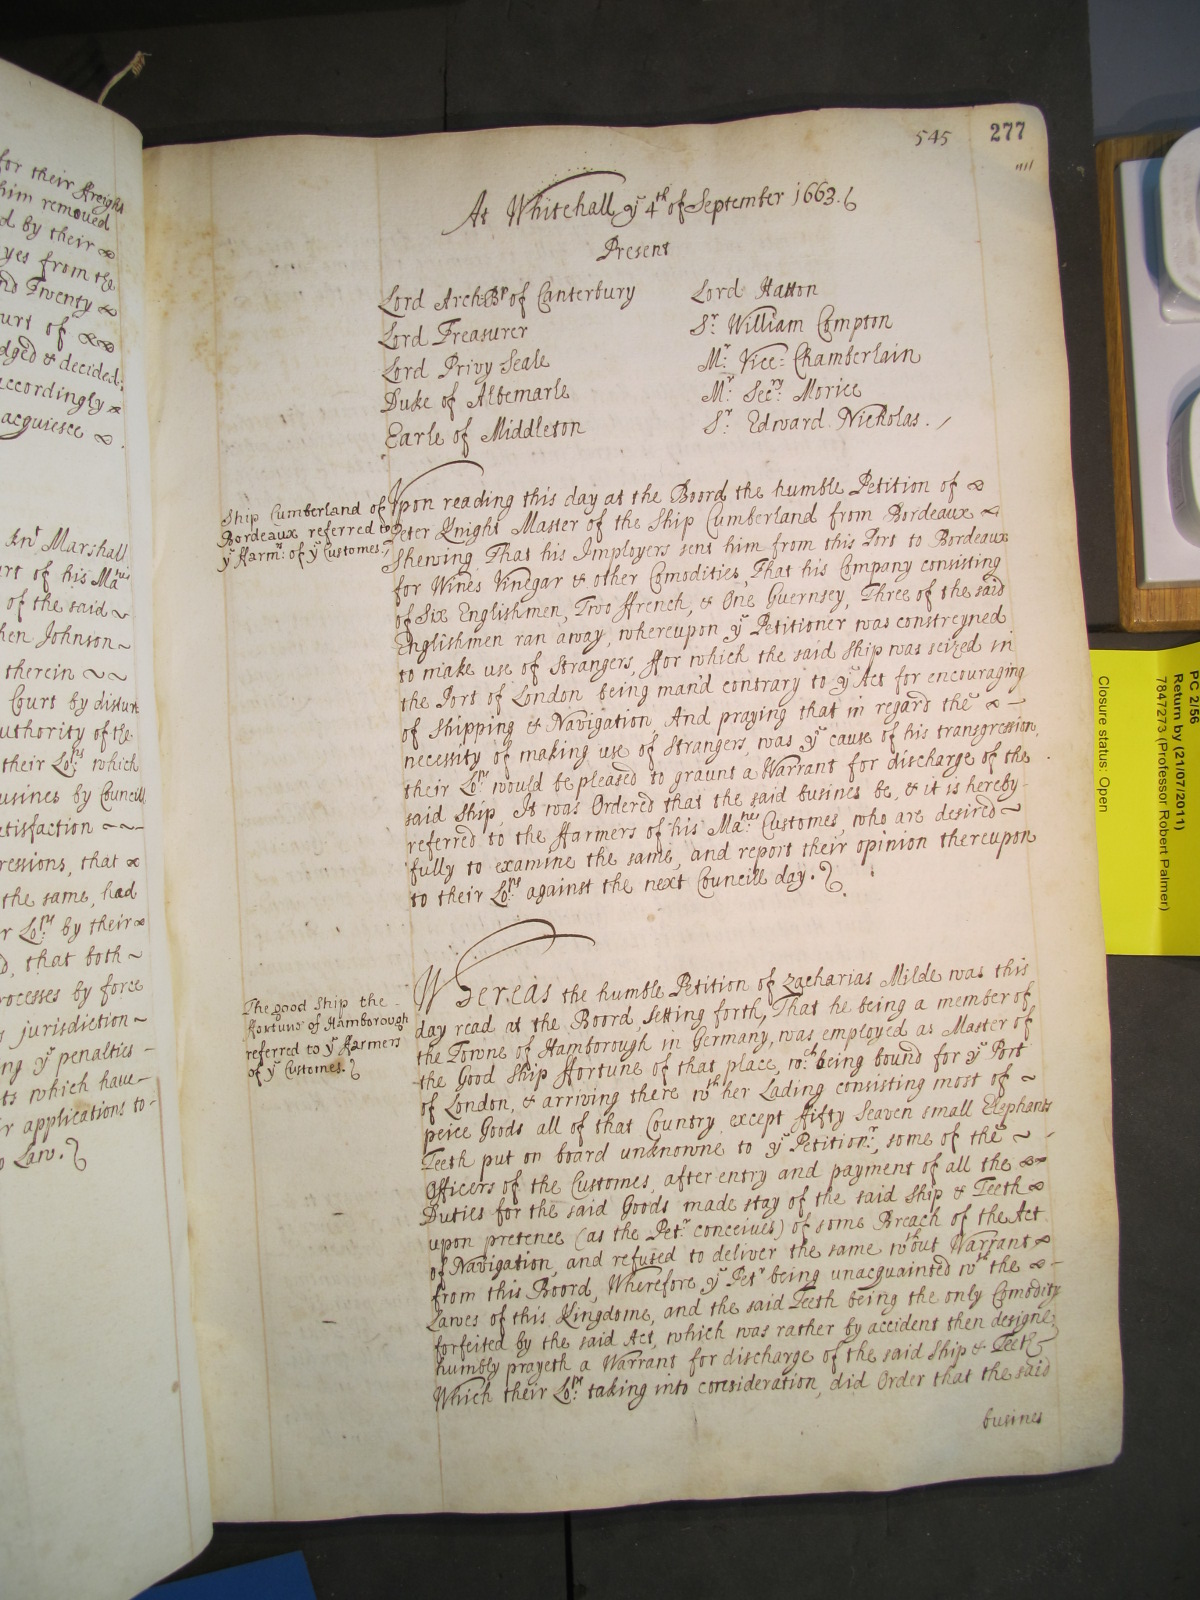 for their Freight
him removed
d by their
yes from the
nd Twenty
urt of
dged & decided
accordingly
acquiesce
Knt Marshall
rt of his Maties
of the said
hen Johnson
therein
Court by disturb
uthority of the
their Lo:pps which
usines by Councill
etisfaction
ressions, that
the same, had
r Lo:pps by their
d, that both
rocesses by force
jurisdiction
ng ye penalties
ts which have
r applications to
o Law.
545 277
At Whitehall ye 4th of September 1663.
Present
Lord ArchBp of Canterbury
Lord Treasurer
Lord Privy Seale
Duke of Albemarle
Earle of Middleton
Lord Hatton
Sr. William Compton
Mr. Vice-Chamberlain
Mr. Secry: Morice
Sr. Edward Nicholas.
Ship Cumberland of
Bordeaux referred to
ye Farmrs: of ye Customes.
Vpon reading this day at the Boord the humble Petition of
Peter Knight Master of the Ship Cumberland from Bordeaux
Shewing That his Imployers sent him from this Port to Bordeaux
for Wines Vinegar & other Comodities, That his Company consisting
of Six Englishmen, Two ffrench, & One Guernsey, Three of the said
Englishmen ran away, whereupon ye Petitioner was constreyned
to make use of Strangers, ffor which the said Ship was seized in
the Port of London being man'd contrary to ye Act for encouraging
of Shipping & Navigation And praying that in regard the
necessity of making use of Strangers, was ye cause of his transgression,
their Lo:pps would be pleased to graunt a Warrant for discharge of the
said Ship, It was Ordered that the said busines be, & it is hereby
referred to the Farmers of his Maties: Customes, who are desired
fully to examine the same, and report their opinion thereupon
to their Lo:pps against the next Councill day.
The good Ship the
ffortune of Hamborough
referred to ye Farmers
of ye Customes.
Whereas the humble Petition of Zacharias Milde was this
day read at the Boord, Setting forth, That he being a member of
the Towne of Hamborough in Germany, was employed as Master of
the Good Ship ffortune of that place, wch: being bound for ye Port
of London, & arriving there wth her Lading consisting most of
peice Goods all of that Country except ffifty Seaven small Elephants
Teeth put on board unknowne to ye Petitionr:, some of the
Officers of the Customes, after entry and payment of all the
Duties for the said Goods made stay of the said Ship & Teeth
upon pretence (as the Petr conceives) of some Breach of the Act
of Navigation, and refused to deliver the same wthout Warrant
from this Boord, Wherefore ye Petr being unacquainted wth the
Lawes of this Kingdome, and the said Teeth being the only Comodity
forfeited by the said Act, which was rather by accident then designe,
humbly prayeth a Warrant for discharge of the said Ship & Teeth
Which their Lo:pps taking into consideration, did Order that the said
busines
PC 2/56
Return by (21/07/2011)
7847273 (Professor Robert Palmer)
Closure status: Open